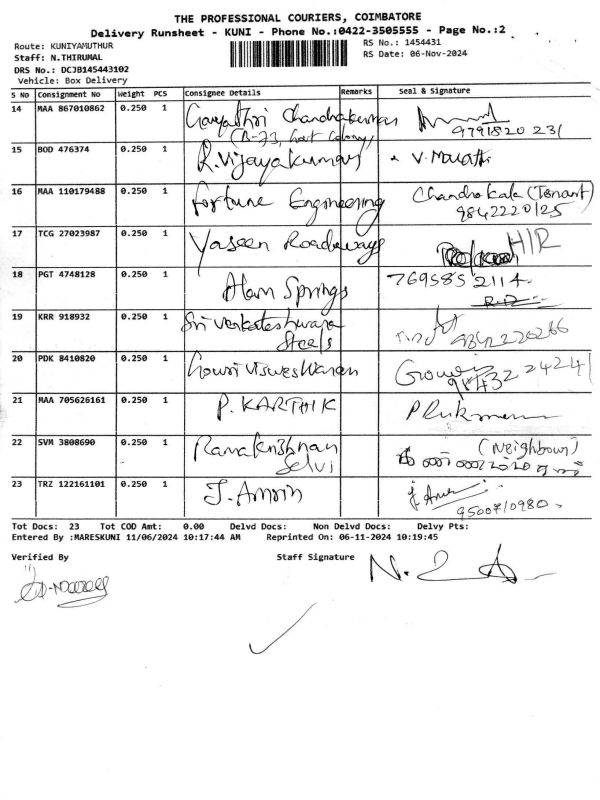 THE PROFESSIONAL COURIERS, COIMBATORE
Delivery Runsheet - KUNI - Phone No.:0422-3505555 - Page No.:2
Route: KUNIYAMUTHUR
RS No.: 1454431
Staff: N.THIRUMAL
RS Date: 06-Nov-2024
DRS No.: DCJB145443102
Vehicle: Box Delivery
S No Consignment No Weight PCS Consignee Details Remarks Seal & Signature
14 MAA 867010862 0.250 1 Gayathri Chandrakumar
(B-73, Govt Colony) 9791820231
15 BOD 476374 0.250 1 R.Vijayakumar V. Marathi
16 MAA 110179488 0.250 1 Fortune Engineering Chandrakala (Tenant)
9842220125
17 TCG 27023987 0.250 1 Yaseen Roadways H/R
18 PGT 4748128 0.250 1 Alam Springs 7695852114
19 KRR 918932 0.250 1 Sri Venkateshwara
Steels 9842220266
20 PDK 8410820 0.250 1 Gowri Visweswaran Gowri
21 MAA 705626161 0.250 1 P. KARTHIK
22 SVM 3808690 0.250 1 Ramakrishnan
Selvi (Neighbour)
23 TRZ 122161101 0.250 1 J. Amrin
9500710980
Tot Docs: 23 Tot COD Amt: 0.00 Delvd Docs: Non Delvd Docs: Delvy Pts:
Entered By :MARESKUNI 11/06/2024 10:17:44 AM Reprinted On: 06-11-2024 10:19:45
Verified By Staff Signature